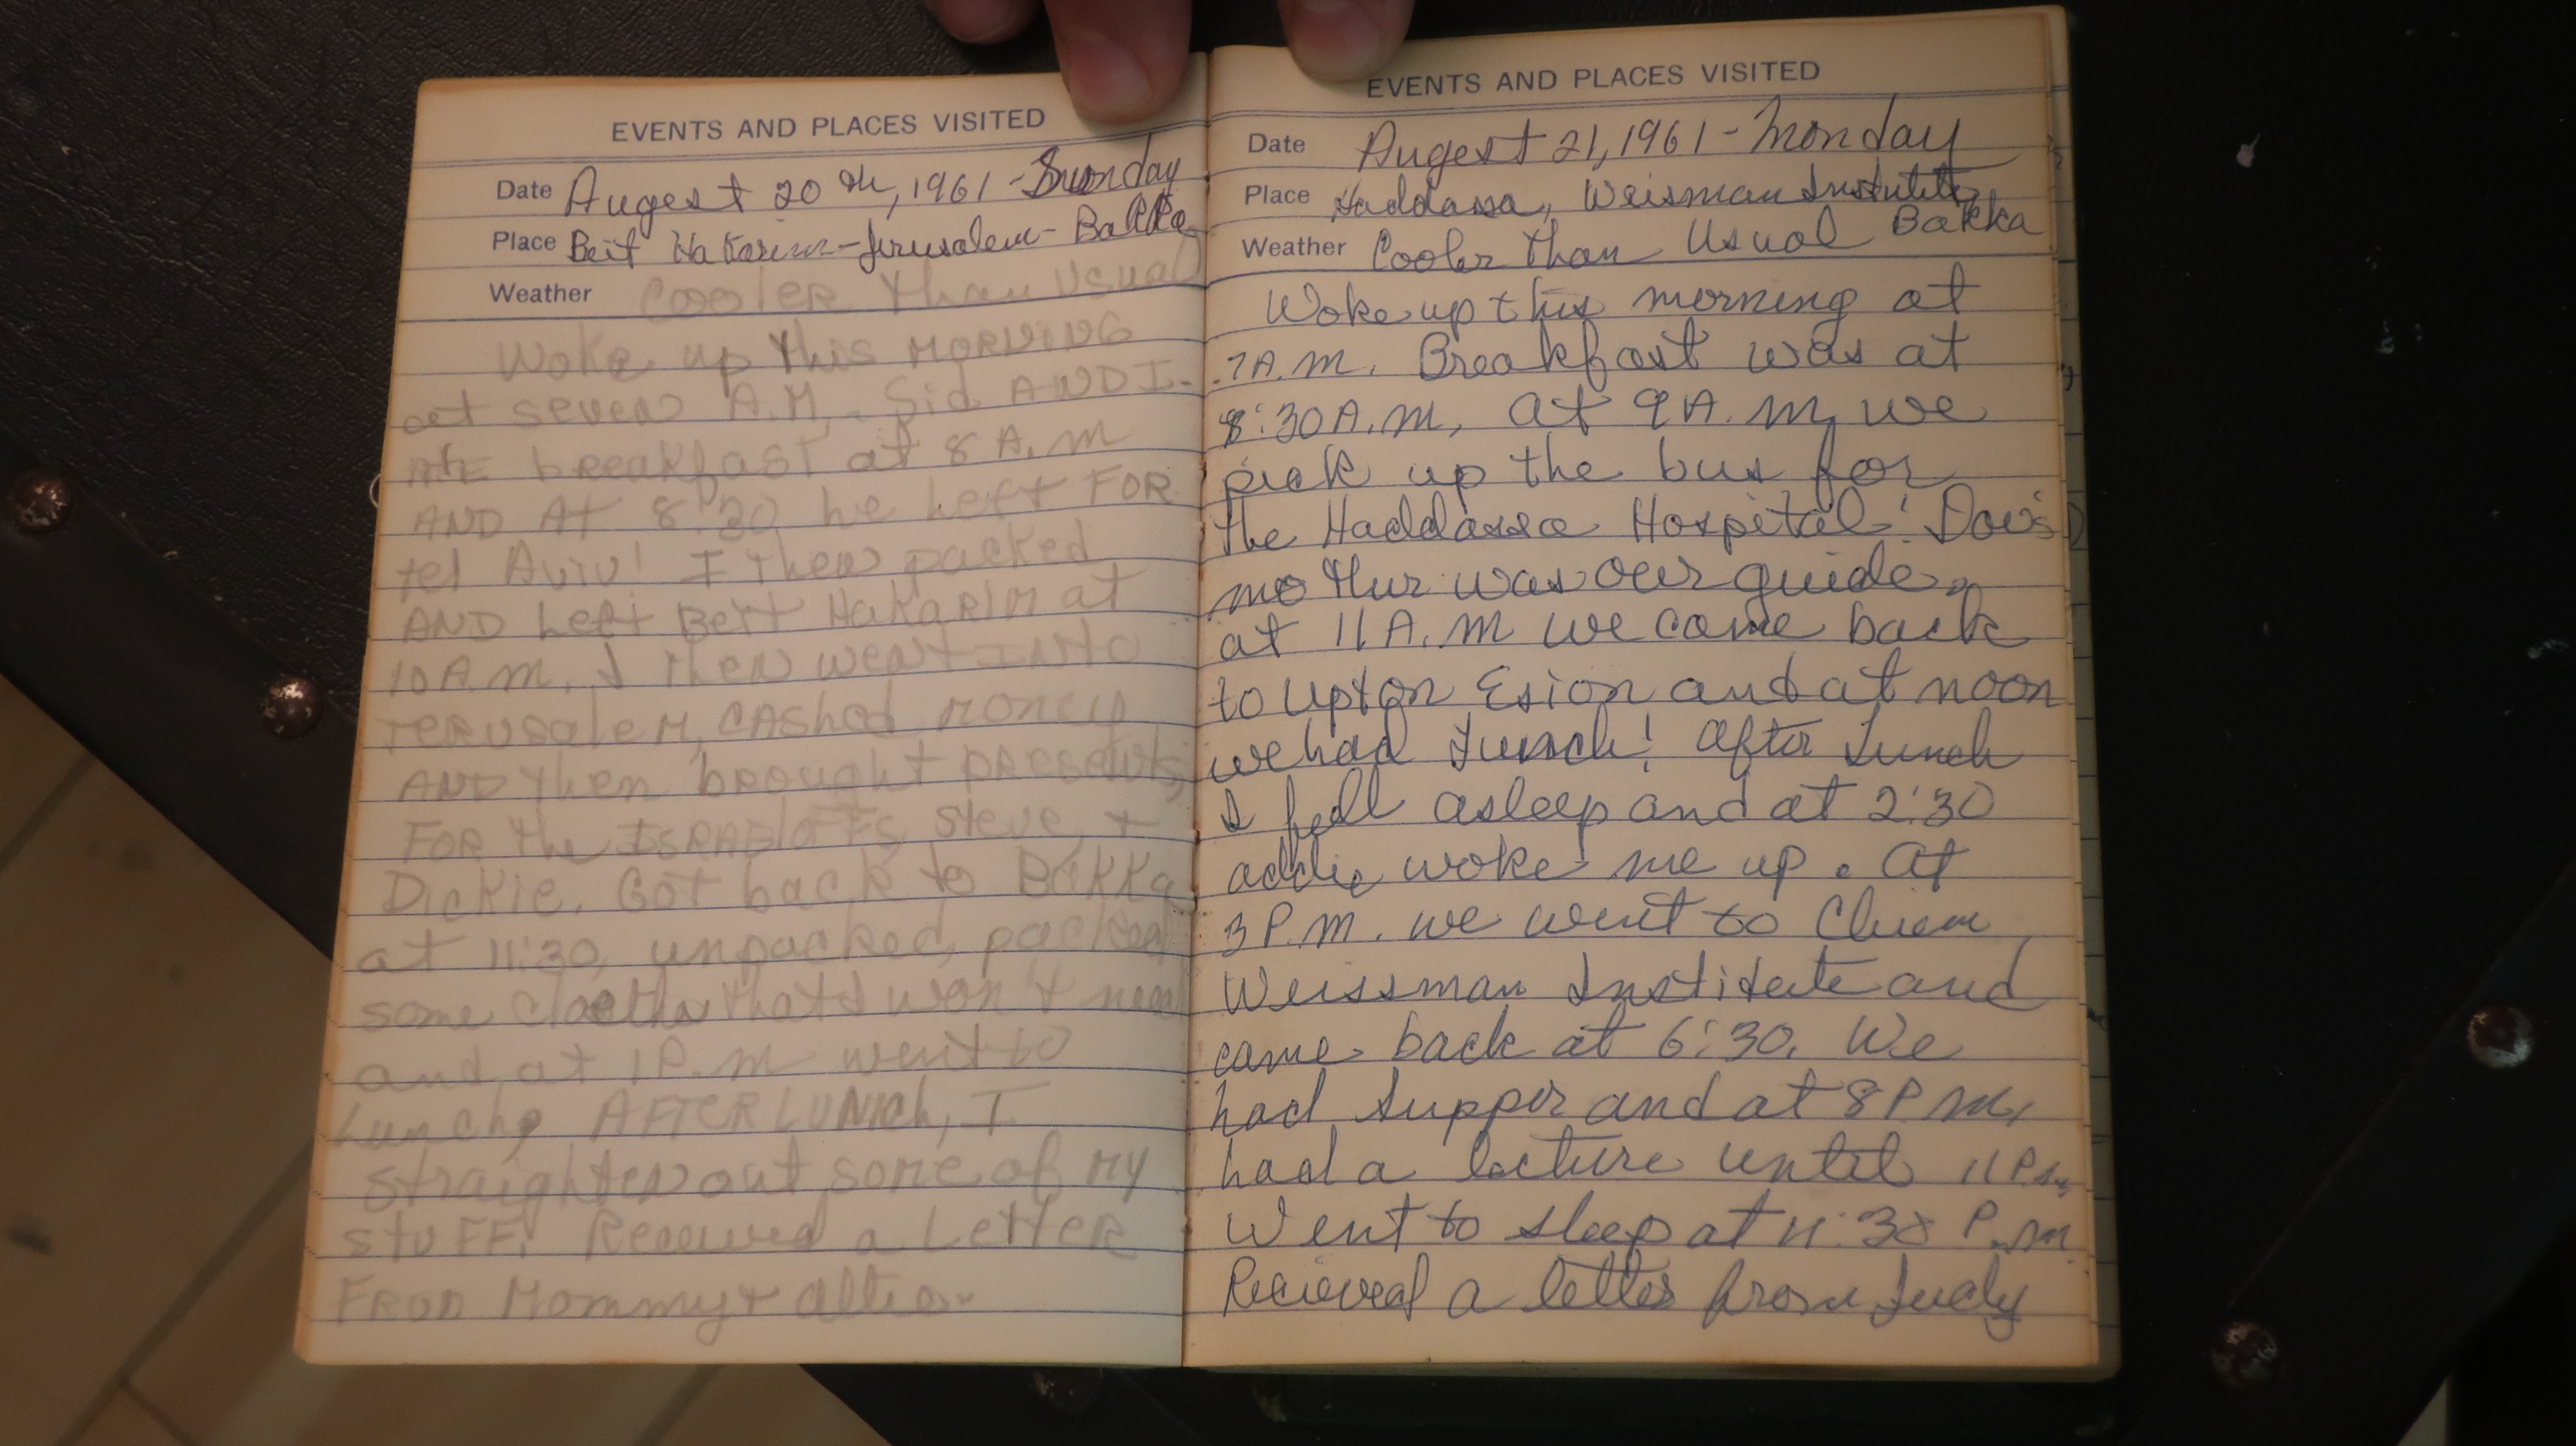 EVENTS AND PLACES VISITED
Date Augest 20th, 1961 - Sunday
Place Beit Hakarim - Jerusalem - Bakka
Weather Cooler than Usual
Woke up this MORNING
at seven A.M. Sid AND I
ate breakfast at 8 A.M
AND At 8:30 he left FOR
tel Aviv! I then packed
AND Left Beit Hakarim at
10 A.M. I then went INto
JERUSaleM, CAShed money
AND then brought presents
FOR the ISRAELOFFS, Steve, +
Dickie. Got back to Bakka
at 11:30, unpacked, packed
some cloeths that I won't need
and at 1 P.m went to
Lunch. AFTER LUNCh, I
straighten out some of MY
stuFF. Received a LetteR
FROM Mommy +
EVENTS AND PLACES VISITED
Date Augest 21, 1961 - Monday
Place Haddassa, Weisman Institute, Bakka
Weather Cooler than Usual
Woke up this morning at
7 A.M. Breakfast was at
8:30 A.M. At 9 A.M. we
pick up the bus for
the Haddassa Hospital! Dov's
mother was our guide.
at 11 A.M we came back
to Upton Esion and at noon
we had Lunch! After Lunch
I fell asleep and at 2:30
addie woke me up. At
3 P.M. we went to
Weissman Institute and
came back at 6:30. We
had Supper and at 8 P.M.
had a lecture until 11 P.M.
Went to sleep at 11:30 P.M
Recieved a letter from Judy